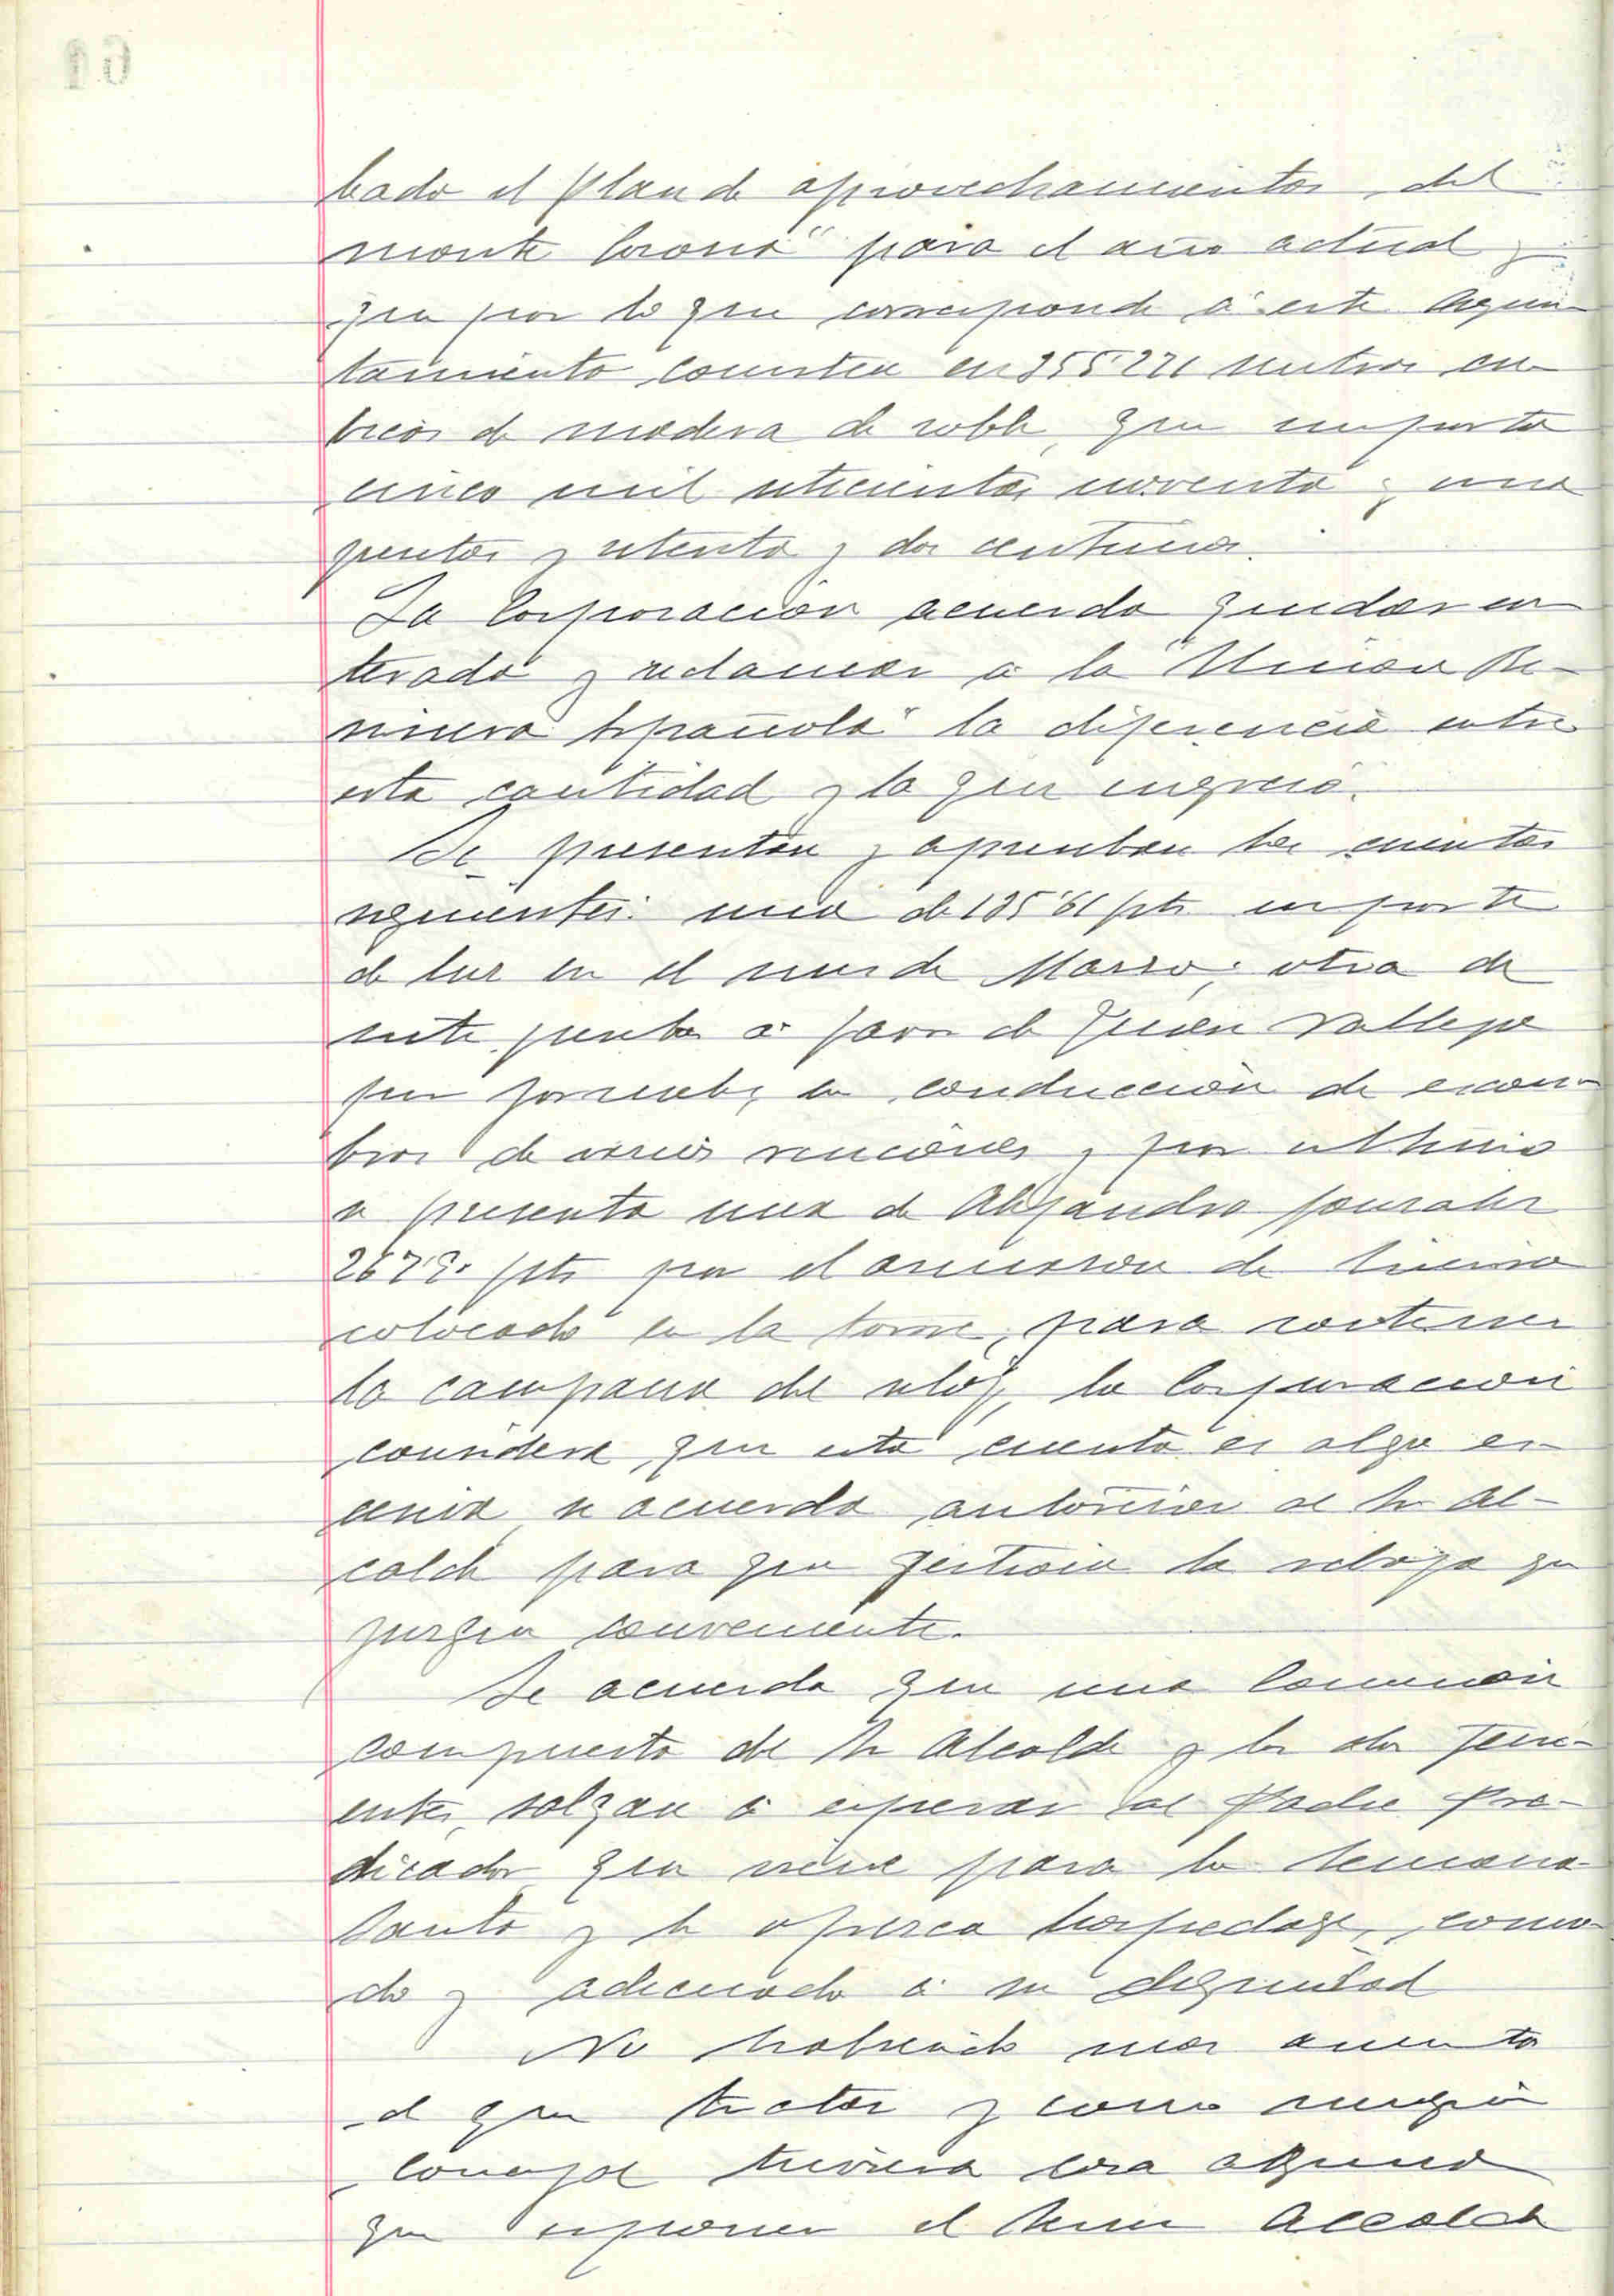 bado el plan de aprovechamientos, del
monte Corona" para el año actual y
que por lo que corresponde á este Ayun-
tamiento consiste en 355'271 metros cu-
bicos de madera de roble, que importa
cinco mil setecientas noventa y una
pesetas y setenta y dos centimos.
La Corporación acuerda quedar en
terada y reclamar a la "Union Re-
sinera Española" la diferencia entre
esta cantidad y la que ingresó.
Se presentan y aprueban las cuentas
siguientes: una de 135'61 pts importe
de luz en el mes de Marzo; otra de
siete pesetas a favor de Juan Vallejo
por jornales en conducción de escom-
bros de varios rincones y por ultimo
se presenta una de Alejandro Gonzalez
pts por el armazon de hierro
colocado en la torre, para sostener
la campana del reloj, la Corporacion
considera que esta cuenta es algo ex-
cesiva se acuerda autorizar al Sr Al-
calde para que gestione la rebaja que
juzgue conveniente.
Se acuerda que una Comision
compuesta del Sr Alcalde y los dos Teni-
entes, salgan á esperar al Padre Pre-
dicador que viene para la Semana
Santa y le ofrezca hospedage, como-
do y adecuado á su dignidad
No habiendo mas asuntos
de que tratar y como ningun
Concejal tuviera cosa alguna
que exponer el Señor Alcalde